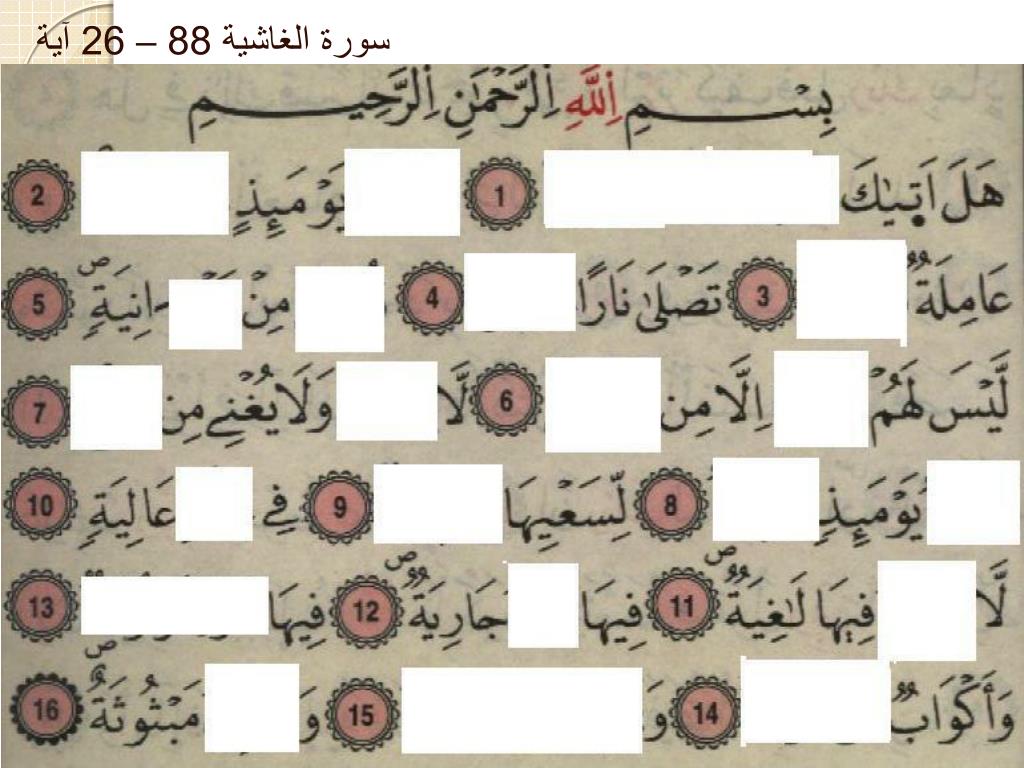 سورة الغاشية 88 – 26 آية
بِسْمِ اِ۬للَّهِ اِ۬لرَّحْمَٰنِ اِ۬لرَّحِيمِ
هَلَ اَت۪يٰكَ 1 يَوْمَئِذٍ 2
عَامِلَةٞ 3 تَصْلَىٰ نَارًا 4 مِنْ ءَانِيَةٖۖ 5
لَّيْسَ لَهُمْ إِلَّا مِن 6 لَّا وَلَا يُغْنِے مِن 7
يَوْمَئِذٖ 8 لِّسَعْيِهَا 9 فِے عَالِيَةٖ 10
لَّا فِيهَا لَٰغِيَةٞۖ 11 فِيهَا جَارِيَةٞۖ 12 فِيهَا 13
وَأَكْوَابٞ 14 وَ 15 وَ مَبْثُوثَةٌۖ 16